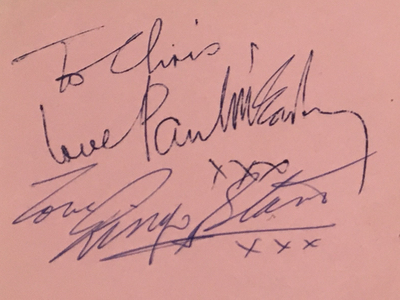 To Chris
love Paul McCartney
xxx
love
Ringo Starr
xxx